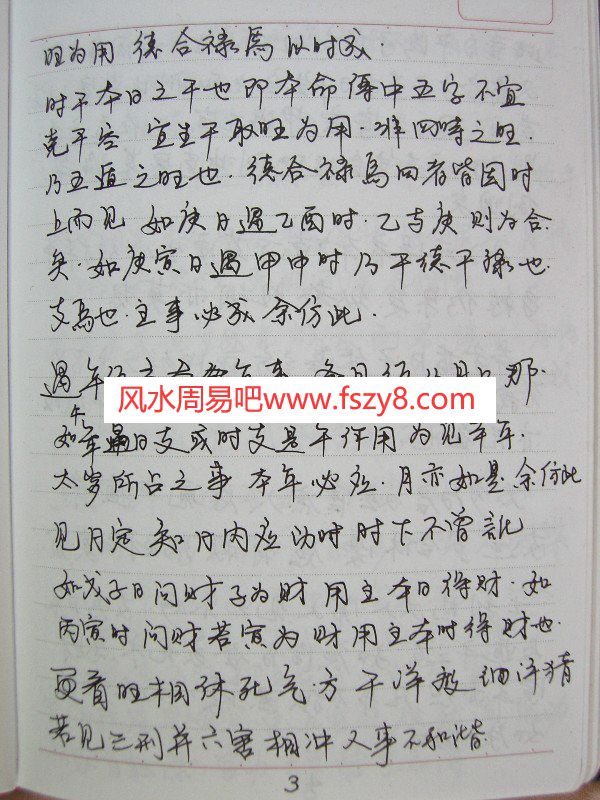 旺为用 德合禄馬以时成
时干本日之干也 即本命傳中五字不宜
克干宫 宜生干取旺为用·准四時之旺·
乃五遁之旺也·德合禄馬四者皆因时
上而见 如庚日遇乙酉时·乙与庚则为合
矣·如庚寅日遇甲申时乃干德干禄也·
支馬也·主事必成余仿此·
遇年
风水周易吧www.fszy8.com
如午年遇日支或时支是午作用为见午年·
太岁所占之事 本年必应·月亦如是·余仿此
见日定知日内应 时下不曾訛
如戊子日问财子为财 用主本日得财·如
丙寅时问财若寅为财用主本时得财也·
更看旺相休死气·方于详 细详猜
若见三刑并六害相冲 又事不和諧
3